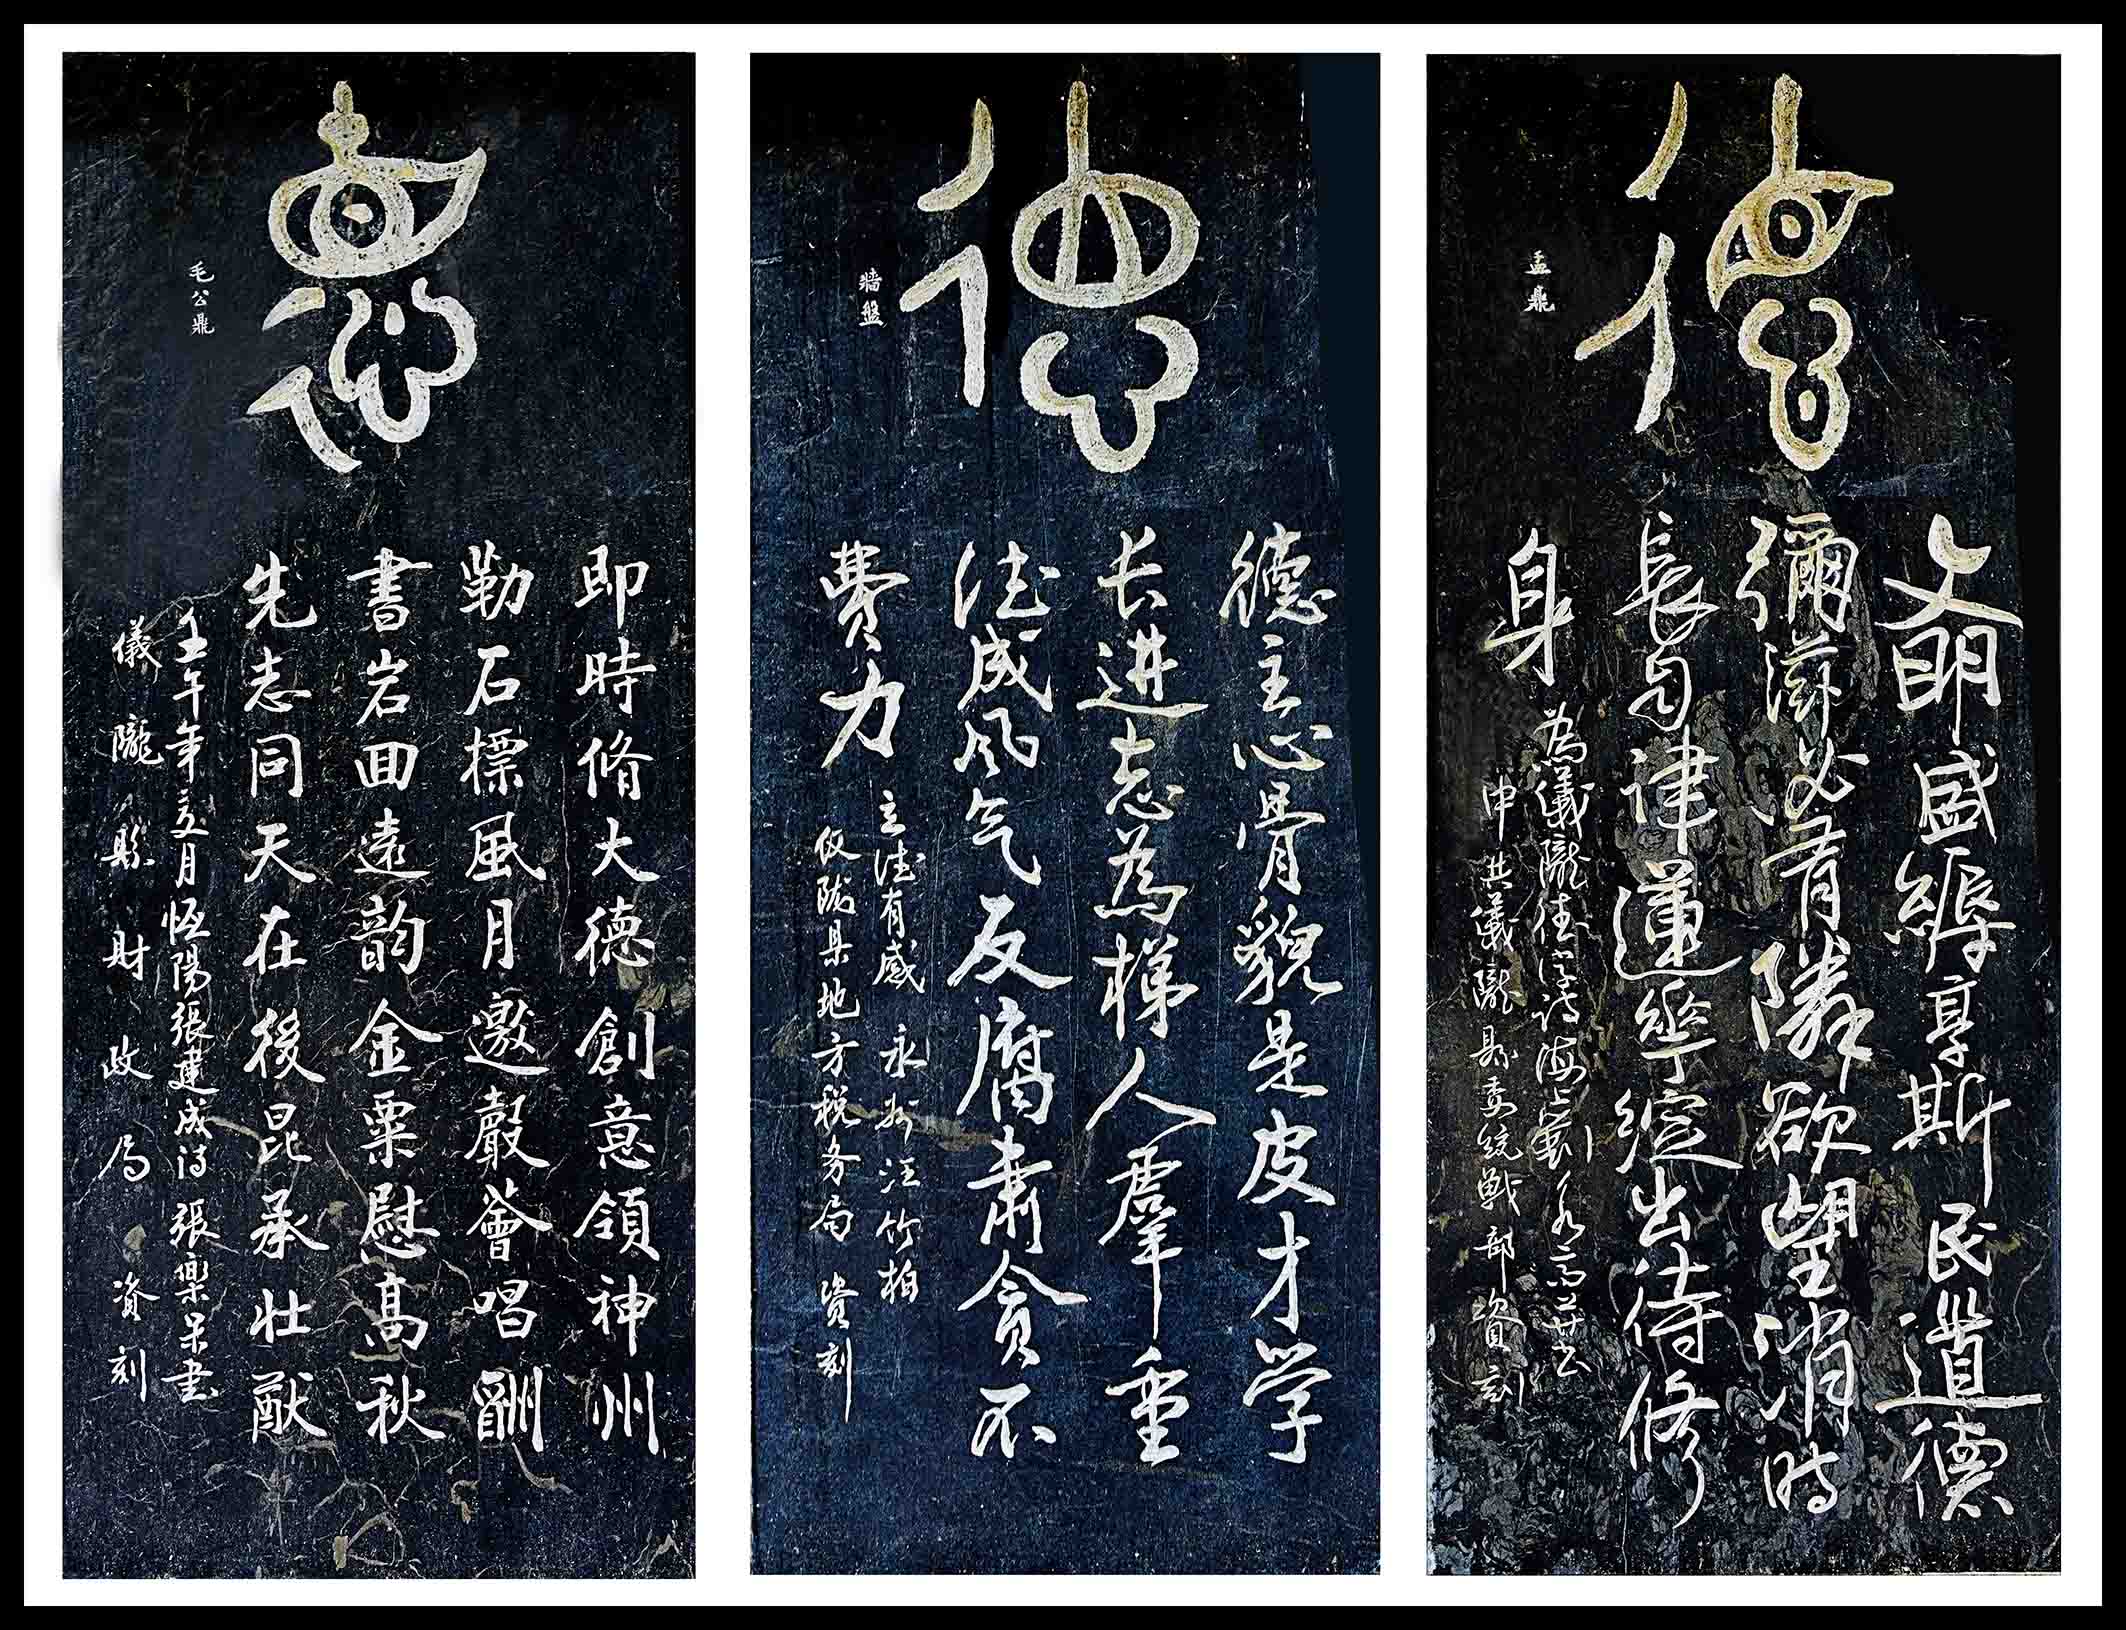 德
盂鼎
文明盛縟享斯民道德
彌滋必有隣欲望消時
長自律蓮華綻出待修
身
為儀隴德字詩海上劉
中共儀隴县委統戰部資刻
德
墻盤
德主心骨貌是皮才学
长进志為梯人羣重
徳成风气反腐肃贪不
费力
立徳有感 永州汪竹柏
仪陇县地方税务局 资刻
德
毛公鼎
即時脩大德創意領神州
勒石標風月邀巖薈唱酬
書岩回遠韵金粟慰高秋
先志同天在後昆承壮猷
壬午年交月恆陽張建成诗 張樂呆書
儀隴縣財政局 資刻